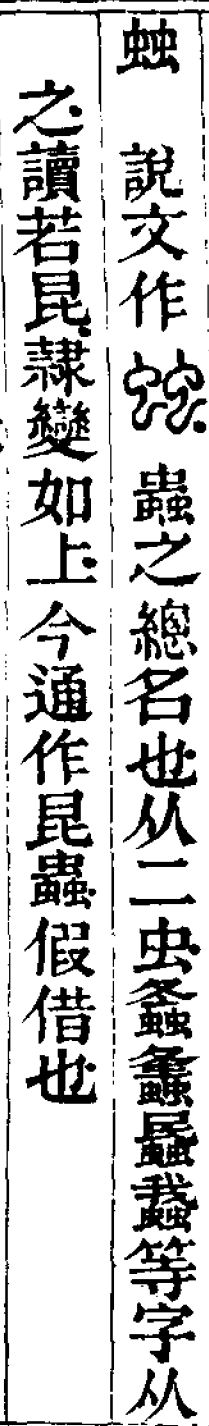 䖵 說文作䖵蟲之總名也从二虫螽蠡蟁䖸等字从
之讀若昆隸變如上今通作昆蟲假借也